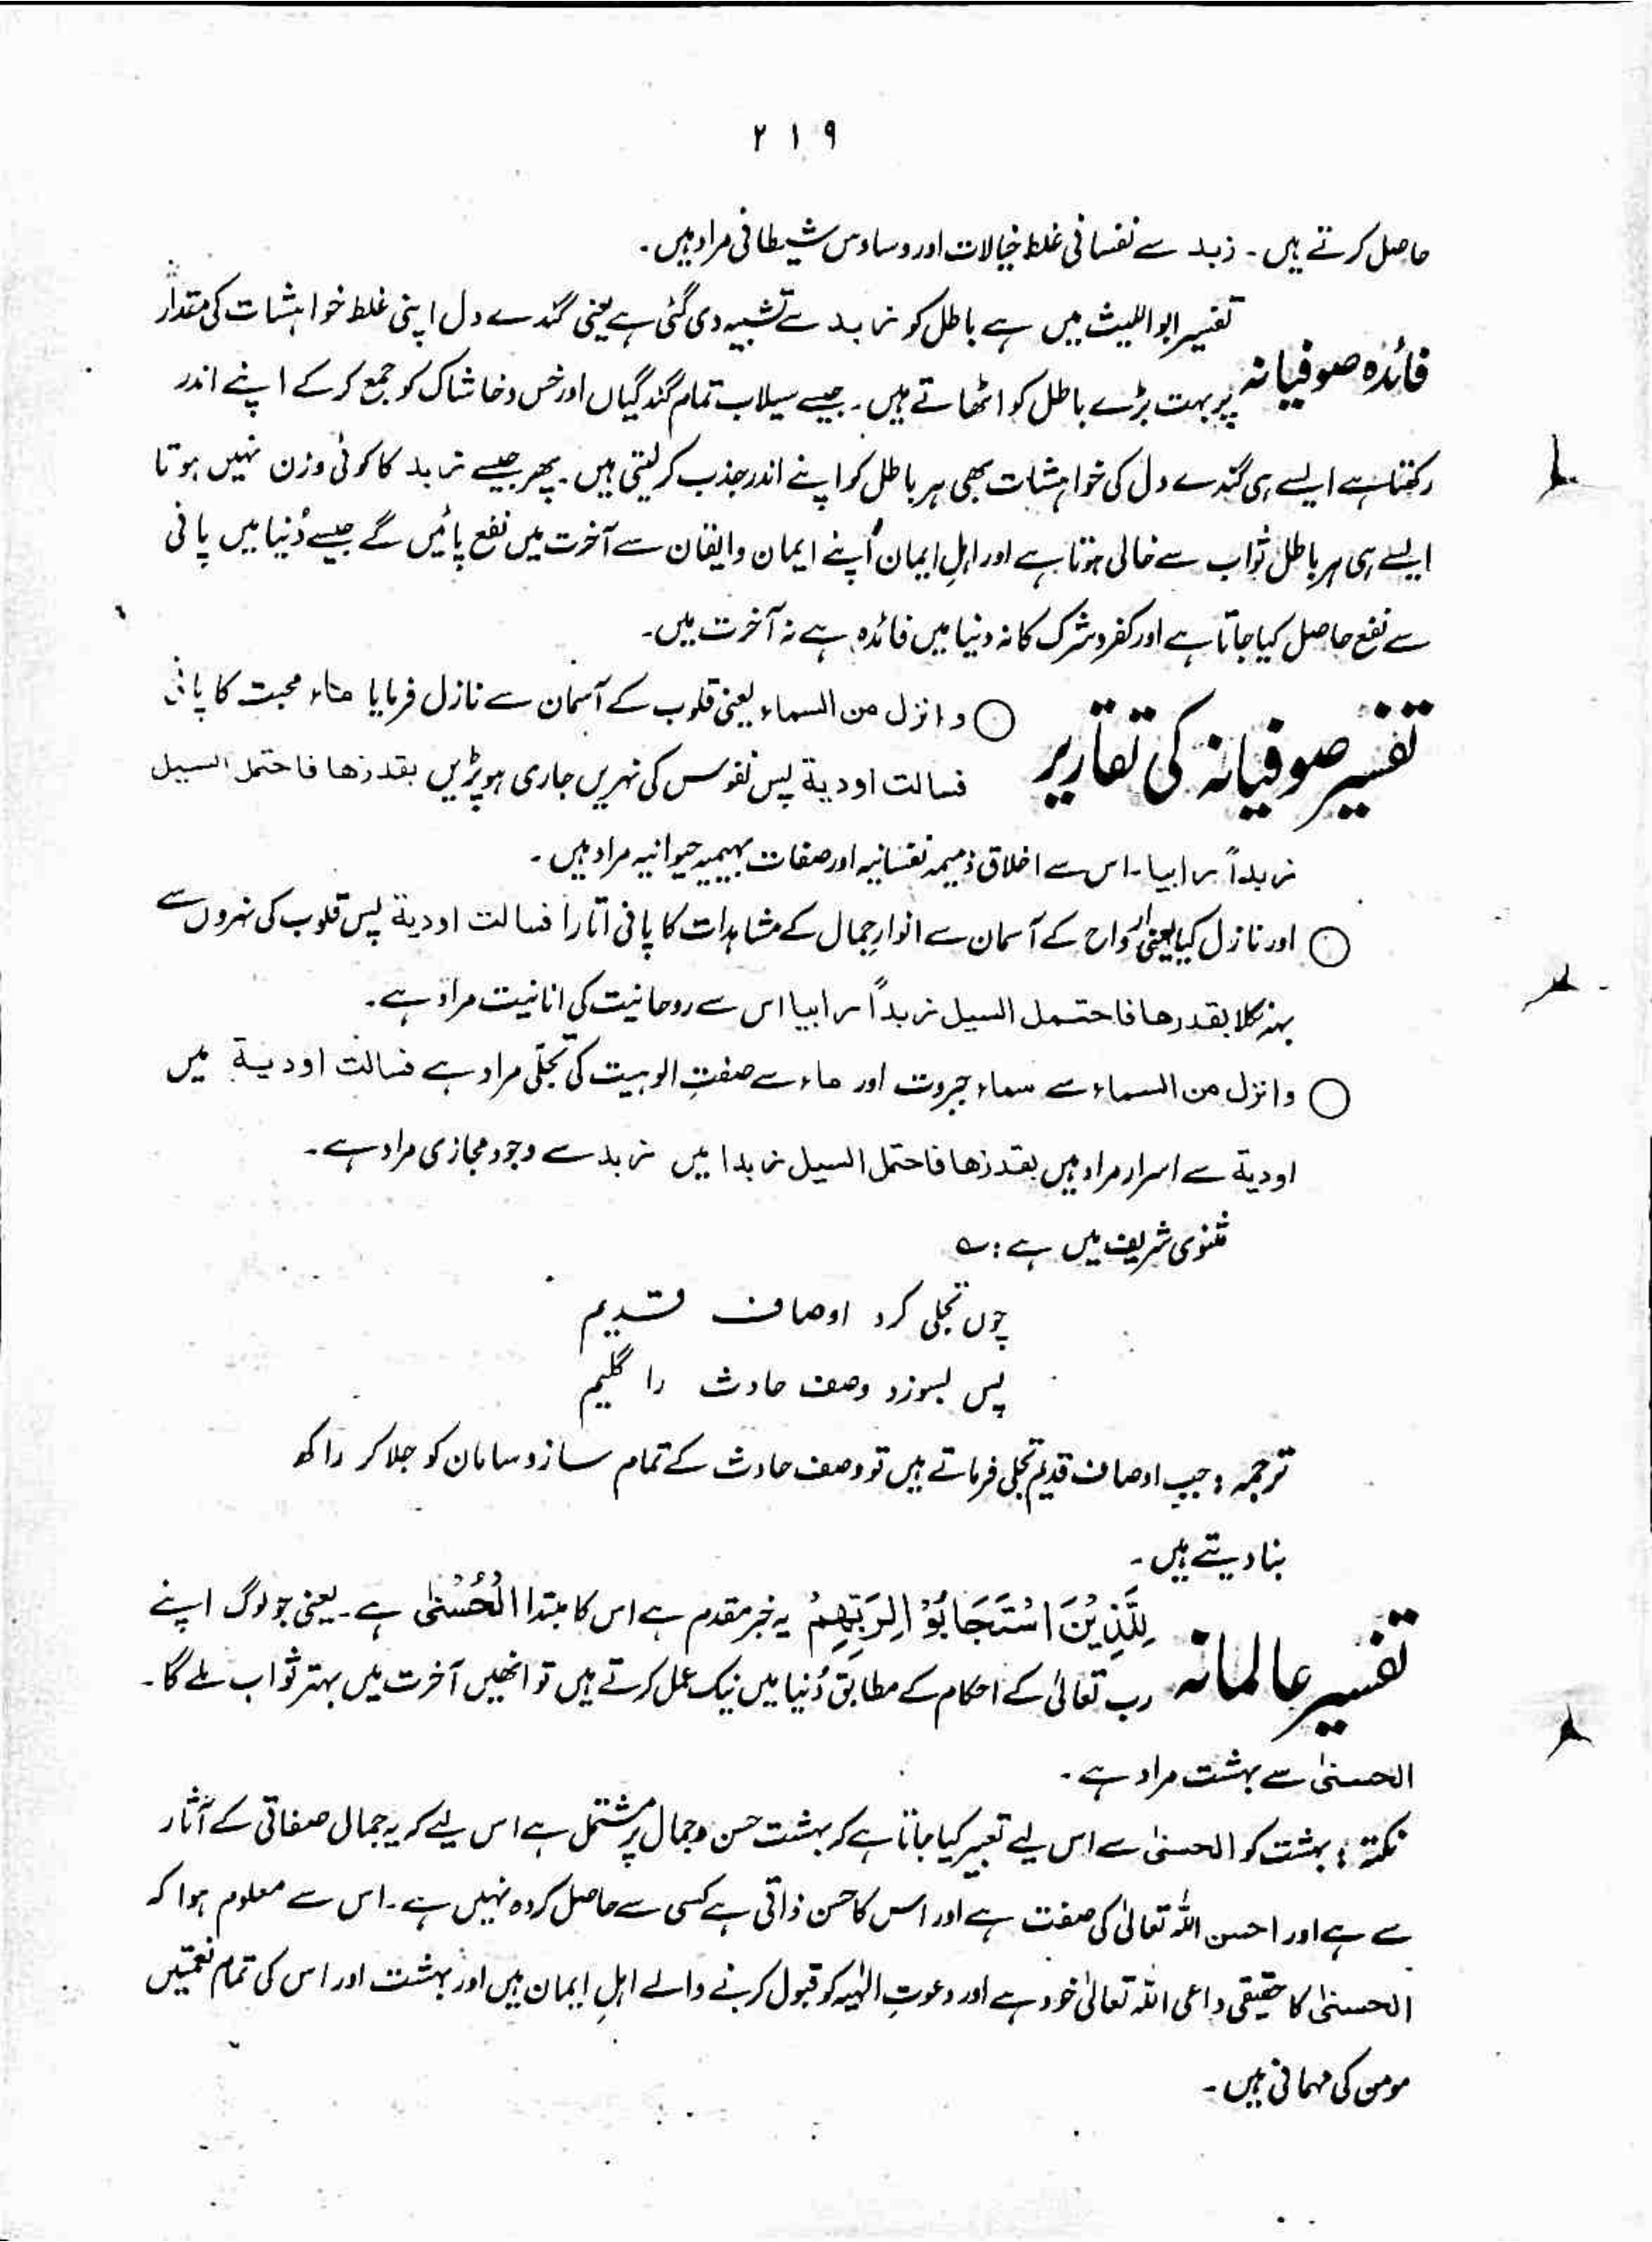 ۲۱۹
حاصل کرتے ہیں۔ زبد سے نفسانی غلط خیالات اور وساوس شیطانی مراد ہیں۔
تفسیر ابواللیث میں ہے باطل کو زبد سے تشبیہ دی گئی ہے یعنی گندے دل اپنی غلط خواہشات کی مقدار
فائدہ صوفیانہ
پر بہت بڑے باطل کو اٹھاتے ہیں۔ جیسے سیلاب تمام گندگیاں اور خس و خاشاک کو جمع کر کے اپنے اندر
رکھتا ہے ایسے ہی گندے دل کی خواہشات بھی ہر باطل کو اپنے اندر جذب کر لیتی ہیں۔ پھر جیسے زبد کا کوئی وزن نہیں ہوتا
ایسے ہی ہر باطل ثواب سے خالی ہوتا ہے اور اہلِ ایمان اپنے ایمان و ایقان سے آخرت میں نفع پائیں گے جیسے دُنیا میں پانی
سے نفع حاصل کیا جاتا ہے اور کفر و شرک کا نہ دنیا میں فائدہ ہے نہ آخرت میں۔
تفسیر صوفیانہ کی تقاریر
○ و انزل من السماء یعنی قلوب کے آسمان سے نازل فرمایا ماء محبت کا پانی
فسالت اودیة پس نفوس کی نہریں جاری ہو پڑیں بقدرھا فاحتمل السیل
زبداً رابیا۔ اس سے اخلاق ذمیمہ نفسانیہ اور صفات بہیمیہ حیوانیہ مراد ہیں۔
○ اور نازل کیا یعنی ارواح کے آسمان سے انوارِ جمال کے مشاہدات کا پانی اتارا فسالت اودیة پس قلوب کی نہروں سے
بہہ نکلا بقدرھا فاحتمل السیل زبداً رابیا اس سے روحانیت کی انانیت مراد ہے۔
○ وانزل من السماء سے سماء جبروت اور ماء سے صفتِ الوہیت کی تجلّی مراد ہے فسالت اودیة میں
اودیة سے اسرار مراد ہیں بقدرھا فاحتمل السیل زبدا میں زبد سے وجود مجازی مراد ہے۔
مثنوی شریف میں ہے : ؎
چوں تجلی کرد اوصاف قدیم
پس بسوزد وصف حادث را گلیم
ترجمہ : جب اوصاف قدیم تجلی فرماتے ہیں تو وصف حادث کے تمام ساز و سامان کو جلا کر راکھ
بنا دیتے ہیں۔
تفسیر عالمانہ
لِلَّذِيْنَ اسْتَجَابُوْا لِرَبِّهِمُ یہ خبر مقدم ہے اس کا مبتدا الْحُسْنٰی ہے۔ یعنی جو لوگ اپنے
رب تعالیٰ کے احکام کے مطابق دُنیا میں نیک عمل کرتے ہیں تو انھیں آخرت میں بہتر ثواب ملے گا۔
الحسنیٰ سے بہشت مراد ہے۔
نکتہ : بہشت کو الحسنیٰ سے اس لیے تعبیر کیا جاتا ہے کہ بہشت حسن و جمال پر مشتمل ہے اس لیے کہ یہ جمال صفاتی کے آثار
سے ہے اور احسن اللہ تعالیٰ کی صفت ہے اور اس کا حسن ذاتی ہے کسی سے حاصل کردہ نہیں ہے۔ اس سے معلوم ہوا کہ
الحسنیٰ کا حقیقی داعی اللہ تعالیٰ خود ہے اور دعوتِ الٰہیہ کو قبول کرنے والے اہلِ ایمان ہیں اور بہشت اور اس کی تمام نعمتیں
مومن کی مہمانی ہیں۔